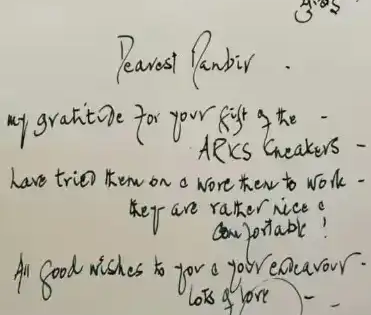 Dearest Ranbir .
my gratitude for your gift of the -
ARKS Sneakers -
have tried them on & wore them to work -
they are rather nice &
comfortable !
All good wishes to you & your endeavour -
lots of love - -